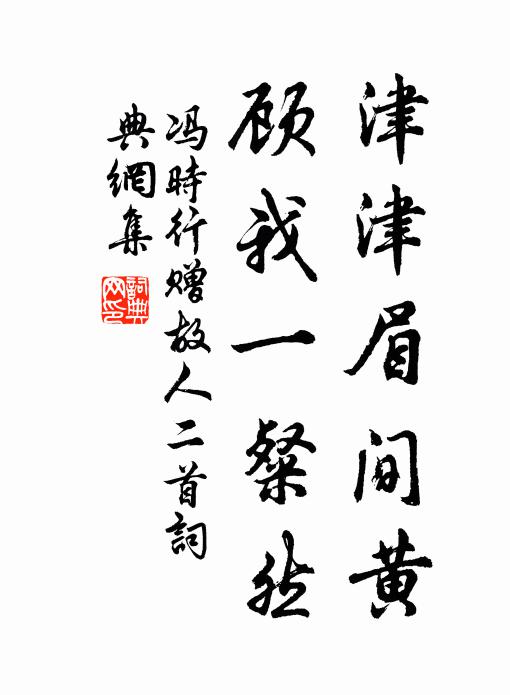 津津眉间黄
顾我一粲然
冯時行赠故人二首詞
典網集
詞典
网印